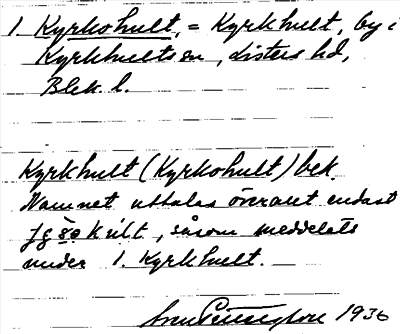 1. Kyrkohult, = Kyrkhult, by i
Kyrkhults sn, Listers hd,
Blek. l.
Kyrkhult (Kyrkohult) bek.
Namnet uttalas överallt endast
såsom meddelats
under 1. Kyrkhult.
1936